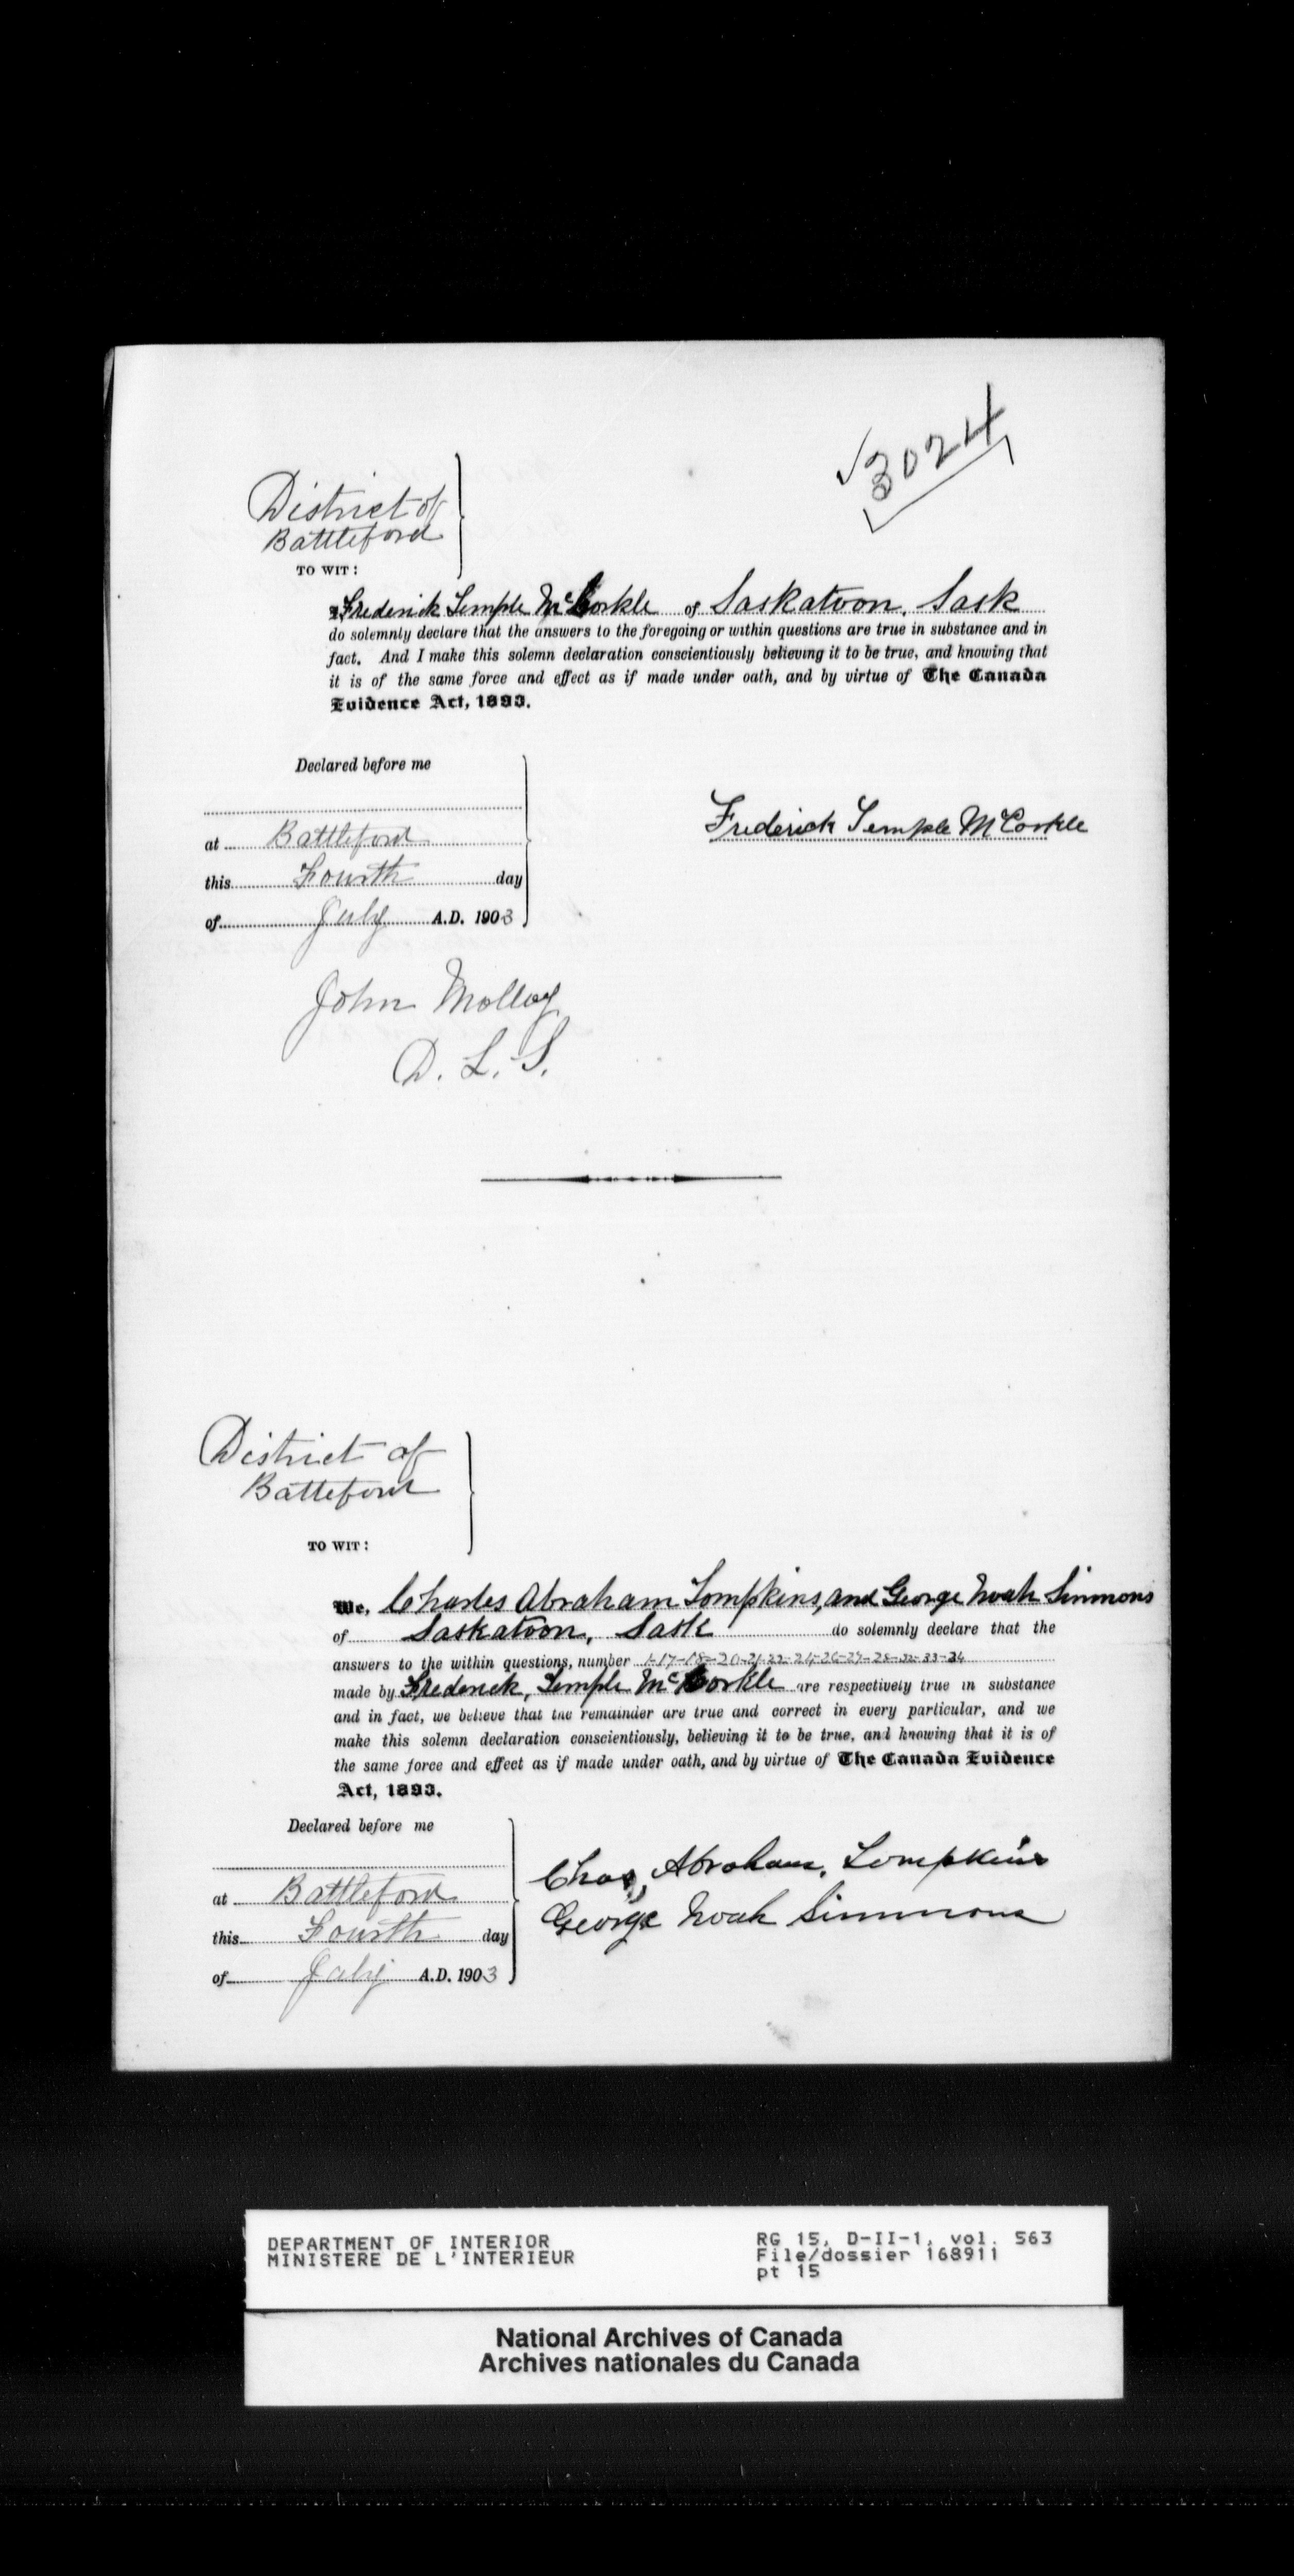 3024
District of
Battleford
TO WIT:
I Frederick Temple McCorkle of Saskatoon, Sask
do solemnly declare that the answers to the foregoing or within questions are true in substance and in
fact. And I make this solemn declaration conscientiously believing it to be true, and knowing that
it is of the same force and effect as if made under oath, and by virtue of The Canada
Evidence Act, 1893.
Declared before me
at Battleford
this Fourth day
of July A.D. 1903
Frederick Temple McCorkle
John Molloy
D. L. S.
District of
Batteford
TO WIT:
We, Charles Abraham Tompkins, and George Noah Simmons
of Saskatoon, Sask do solemnly declare that the
answers to the within questions, number 1-17-18-20-21-22-24-26-27-28-32-33-34
made by Frederick, Temple McCorkle are respectively true in substance
and in fact, we believe that the remainder are true and correct in every particular, and we
make this solemn declaration conscientiously, believing it to be true, and knowing that it is of
the same force and effect as if made under oath, and by virtue of The Canada Evidence
Act, 1893.
Declared before me
at Battleford
this Fourth day
of July A.D. 1903
Chas, Abraham, Tompkins
George Noah Simmons
DEPARTMENT OF INTERIOR
MINISTERE DE L'INTERIEUR
RG 15, D-II-1, vol. 563
File/dossier 168911
pt 15
National Archives of Canada
Archives nationales du Canada